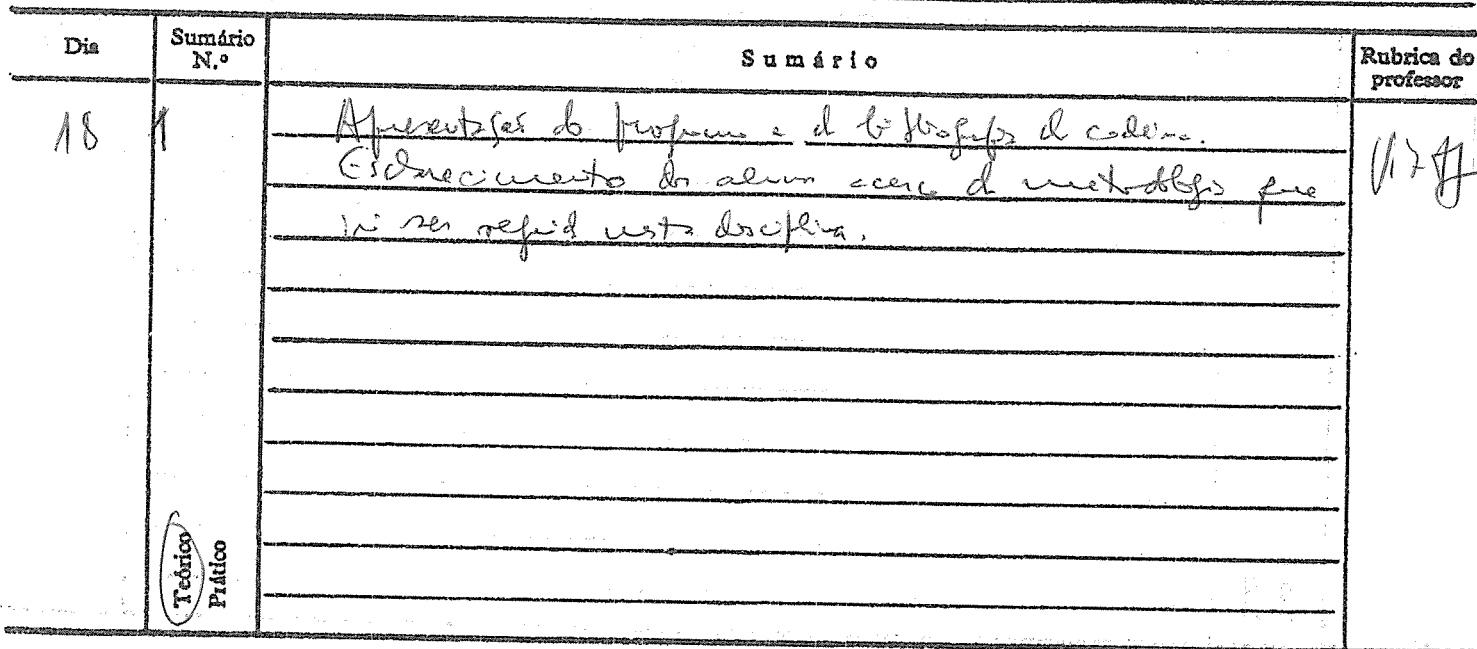 Dia
Sumário N.º
Sumário
Rubrica do professor
18
1
Apresentação do programa e da bibliografia da cadeira.
Esclarecimento dos alunos acerca da metodologia que
irá ser seguida nesta disciplina.
Teórico
Prático